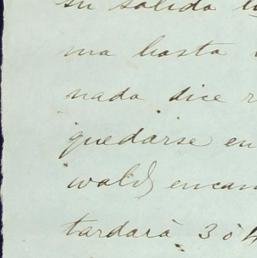 su salida
ma hasta
nada dice
quedarse en
wald encan
tardará 3 ó 4